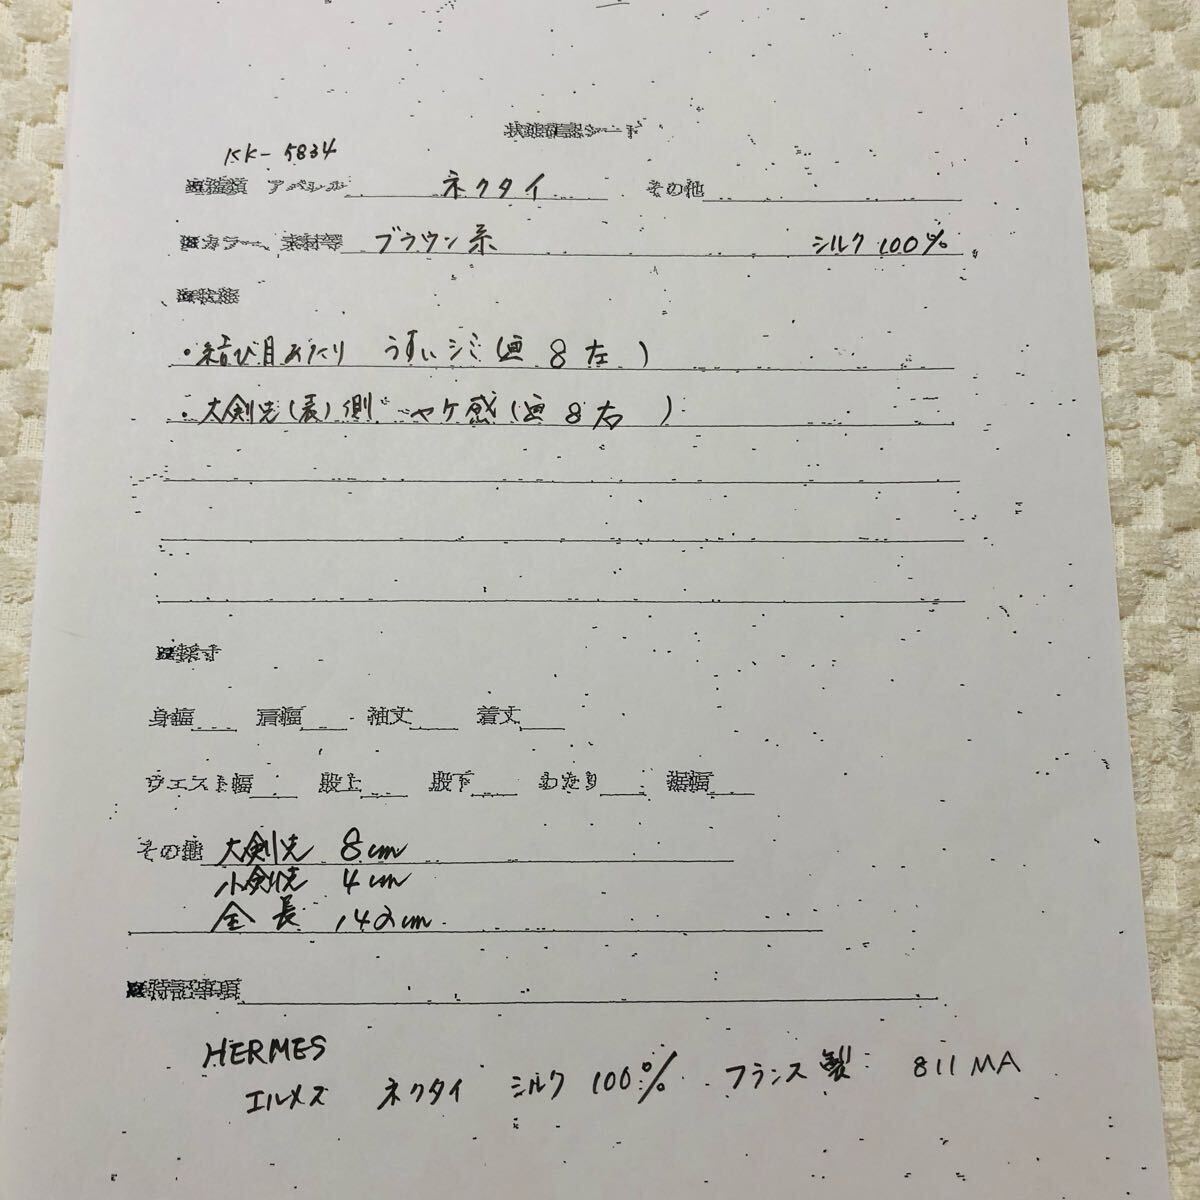 状態確認シート
KK-5834
■種類 アパレル ネクタイ その他
■カラー、素材等 ブラウン系 シルク 100%
■状態
・結び目あたり うすいシミ(画 8 左 )
・大剣先(表)側 ヤケ感(画 8 右 )
■採寸
身幅 肩幅 袖丈 着丈
ウエスト幅 股上 股下 わたり 裾幅
その他 大剣先 8cm
小剣先 4cm
全長 142cm
■特記事項
HERMES
エルメス ネクタイ シルク 100% フランス製 811MA